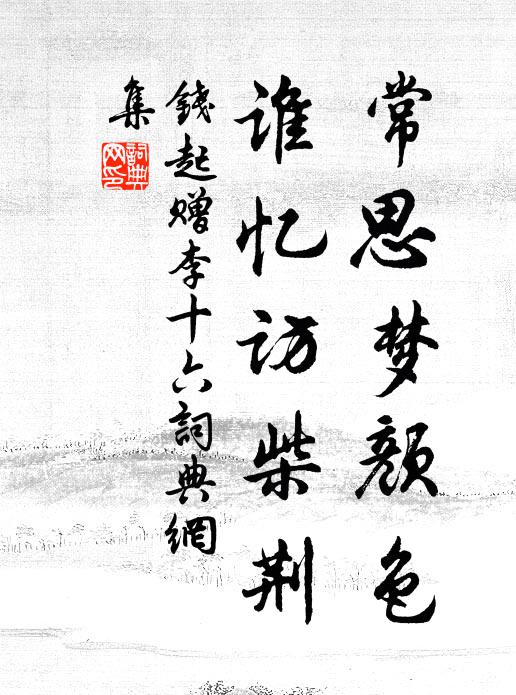 常思梦颜色
谁忆访柴荆
錢起赠李十六詞典網
集
詞典
网印